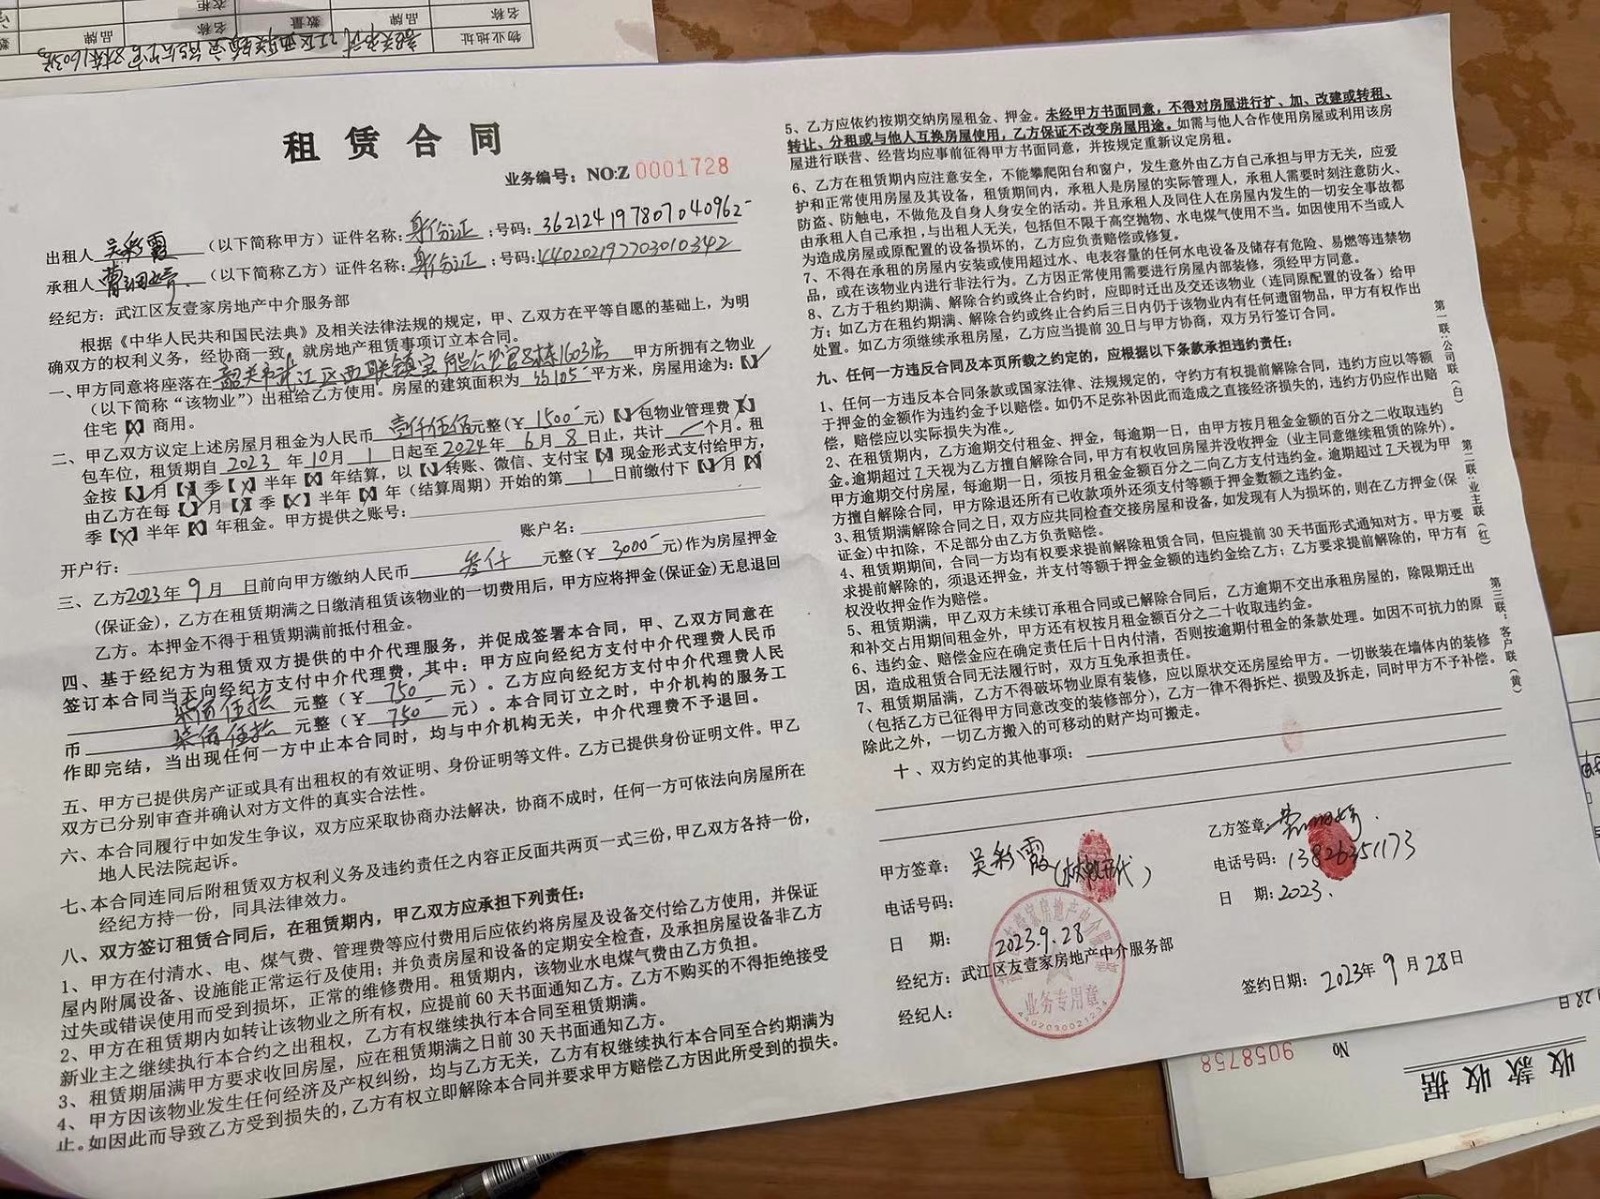 物业地址
名称
品牌
数量
名称
品牌
衣柜
租赁合同
业务编号：NO:Z 0001728
出租人 吴彩霞 （以下简称甲方）证件名称：身份证；号码：362124197807040962
承租人 （以下简称乙方）证件名称：身份证；号码：440202197703010342
经纪方：武江区友壹家房地产中介服务部
根据《中华人民共和国民法典》及相关法律法规的规定，甲、乙双方在平等自愿的基础上，为明
确双方的权利义务，经协商一致，就房地产租赁事项订立本合同。
一、甲方同意将座落在 韶关市武江区西联镇宝能公馆8栋1603房 甲方所拥有之物业
（以下简称“该物业”）出租给乙方使用。房屋的建筑面积为 平方米，房屋用途为：【✓】
住宅【X】商用。
二、甲乙双方议定上述房屋月租金为人民币 壹仟伍佰 元整（￥1500元）【 】包物业管理费【X】
包车位，租赁期自 2023 年 10 月 1 日起至 2024 年 6 月 8 日止，共计 个月。租
金按【✓】月【X】季【X】半年【X】年结算，以【✓】转账、微信、支付宝【X】现金形式支付给甲方，
由乙方在每【✓】月【X】季【X】半年【X】年（结算周期）开始的第 1 日前缴付下【✓】月【X】
季【X】半年【X】年租金。甲方提供之账号：
账户名：
开户行：
三、乙方2023年 9 月 日前向甲方缴纳人民币 叁仟 元整（￥3000元）作为房屋押金
（保证金），乙方在租赁期满之日缴清租赁该物业的一切费用后，甲方应将押金(保证金)无息退回
乙方。本押金不得于租赁期满前抵付租金。
四、基于经纪方为租赁双方提供的中介代理服务，并促成签署本合同，甲、乙双方同意在
签订本合同当天向经纪方支付中介代理费，其中：甲方应向经纪方支付中介代理费人民币
柒佰伍拾 元整（￥ 750 元）。乙方应向经纪方支付中介代理费人民
币 柒佰伍拾 元整（￥ 750 元）。本合同订立之时，中介机构的服务工
作即完结，当出现任何一方中止本合同时，均与中介机构无关，中介代理费不予退回。
五、甲方已提供房产证或具有出租权的有效证明、身份证明等文件。乙方已提供身份证明文件。甲乙
双方已分别审查并确认对方文件的真实合法性。
六、本合同履行中如发生争议，双方应采取协商办法解决，协商不成时，任何一方可依法向房屋所在
地人民法院起诉。
七、本合同连同后附租赁双方权利义务及违约责任之内容正反面共两页一式三份，甲乙双方各持一份，
经纪方持一份，同具法律效力。
八、双方签订租赁合同后，在租赁期内，甲乙双方应承担下列责任：
1、甲方在付清水、电、煤气费、管理费等应付费用后应依约将房屋及设备交付给乙方使用，并保证
屋内附属设备、设施能正常运行及使用；并负责房屋和设备的定期安全检查，及承担房屋设备非乙方
过失或错误使用而受到损坏，正常的维修费用。租赁期内，该物业水电煤气费由乙方负担。
2、甲方在租赁期内如转让该物业之所有权，应提前60天书面通知乙方。乙方不购买的不得拒绝接受
新业主之继续执行本合约之出租权，乙方有权继续执行本合同至租赁期满。
3、租赁期届满甲方要求收回房屋，应在租赁期满之日前30天书面通知乙方。
4、甲方因该物业发生任何经济及产权纠纷，均与乙方无关，乙方有权继续执行本合同至合约期满为
止。如因此而导致乙方受到损失的，乙方有权立即解除本合同并要求甲方赔偿乙方因此所受到的损失。
5、乙方应依约按期交纳房屋租金、押金。未经甲方书面同意，不得对房屋进行扩、加、改建或转租、
转让、分租或与他人互换房屋使用，乙方保证不改变房屋用途。如需与他人合作使用房屋或利用该房
屋进行联营、经营均应事前征得甲方书面同意，并按规定重新议定房租。
6、乙方在租赁期内应注意安全，不能攀爬阳台和窗户，发生意外由乙方自己承担与甲方无关，应爱
护和正常使用房屋及其设备，租赁期间内，承租人是房屋的实际管理人，承租人需要时刻注意防火、
防盗、防触电，不做危及自身人身安全的活动。并且承租人及同住人在房屋内发生的一切安全事故都
由承租人自己承担，与出租人无关，包括但不限于高空抛物、水电煤气使用不当。如因使用不当或人
为造成房屋或原配置的设备损坏的，乙方应负责赔偿或修复。
7、不得在承租的房屋内安装或使用超过水、电表容量的任何水电设备及储存有危险、易燃等违禁物
品，或在该物业内进行非法行为。乙方因正常使用需要进行房屋内部装修，须经甲方同意。
8、乙方于租约期满、解除合约或终止合约时，应即时迁出及交还该物业（连同原配置的设备）给甲
方；如乙方在租约期满、解除合约或终止合约后三日内仍于该物业内有任何遗留物品，甲方有权作出
处置。如乙方须继续承租房屋，乙方应当提前30日与甲方协商，双方另行签订合同。
九、任何一方违反合同及本页所载之约定的，应根据以下条款承担违约责任：
1、任何一方违反本合同条款或国家法律、法规规定的，守约方有权提前解除合同，违约方应以等额
于押金的金额作为违约金予以赔偿。如仍不足弥补因此而造成之直接经济损失的，违约方仍应作出赔
偿，赔偿应以实际损失为准。
2、在租赁期内，乙方逾期交付租金、押金，每逾期一日，由甲方按月租金金额的百分之二收取违约
金。逾期超过7天视为乙方擅自解除合同，甲方有权收回房屋并没收押金（业主同意继续租赁的除外）。
甲方逾期交付房屋，每逾期一日，须按月租金金额百分之二向乙方支付违约金。逾期超过7天视为甲
方擅自解除合同，甲方除退还所有已收款项外还须支付等额于押金数额之违约金。
3、租赁期满解除合同之日，双方应共同检查交接房屋和设备，如发现有人为损坏的，则在乙方押金(保
证金)中扣除，不足部分由乙方负责赔偿。
4、租赁期期间，合同一方均有权要求提前解除租赁合同，但应提前30天书面形式通知对方。甲方要
求提前解除的，须退还押金，并支付等额于押金金额的违约金给乙方；乙方要求提前解除的，甲方有
权没收押金作为赔偿。
5、租赁期满，甲乙双方未续订承租合同或已解除合同后，乙方逾期不交出承租房屋的，除限期迁出
和补交占用期间租金外，甲方还有权按月租金额百分之二十收取违约金。
6、违约金、赔偿金应在确定责任后十日内付清，否则按逾期付租金的条款处理。如因不可抗力的原
因，造成租赁合同无法履行时，双方互免承担责任。
7、租赁期届满，乙方不得破坏物业原有装修，应以原状交还房屋给甲方。一切嵌装在墙体内的装修
（包括乙方已征得甲方同意改变的装修部分），乙方一律不得拆烂、损毁及拆走，同时甲方不予补偿。
除此之外，一切乙方搬入的可移动的财产均可搬走。
十、双方约定的其他事项：
第一联：公司联（白） 第二联：业主联（红） 第三联：客户联（黄）
甲方签章： 吴彩霞
电话号码：
日 期： 2023.9.28
经纪方：武江区友壹家房地产中介服务部
经纪人：
业务专用章
乙方签章：
电话号码：13826351173
日 期：2023.
签约日期：2023年 9 月 28日
收款收据
No 9058758
28日